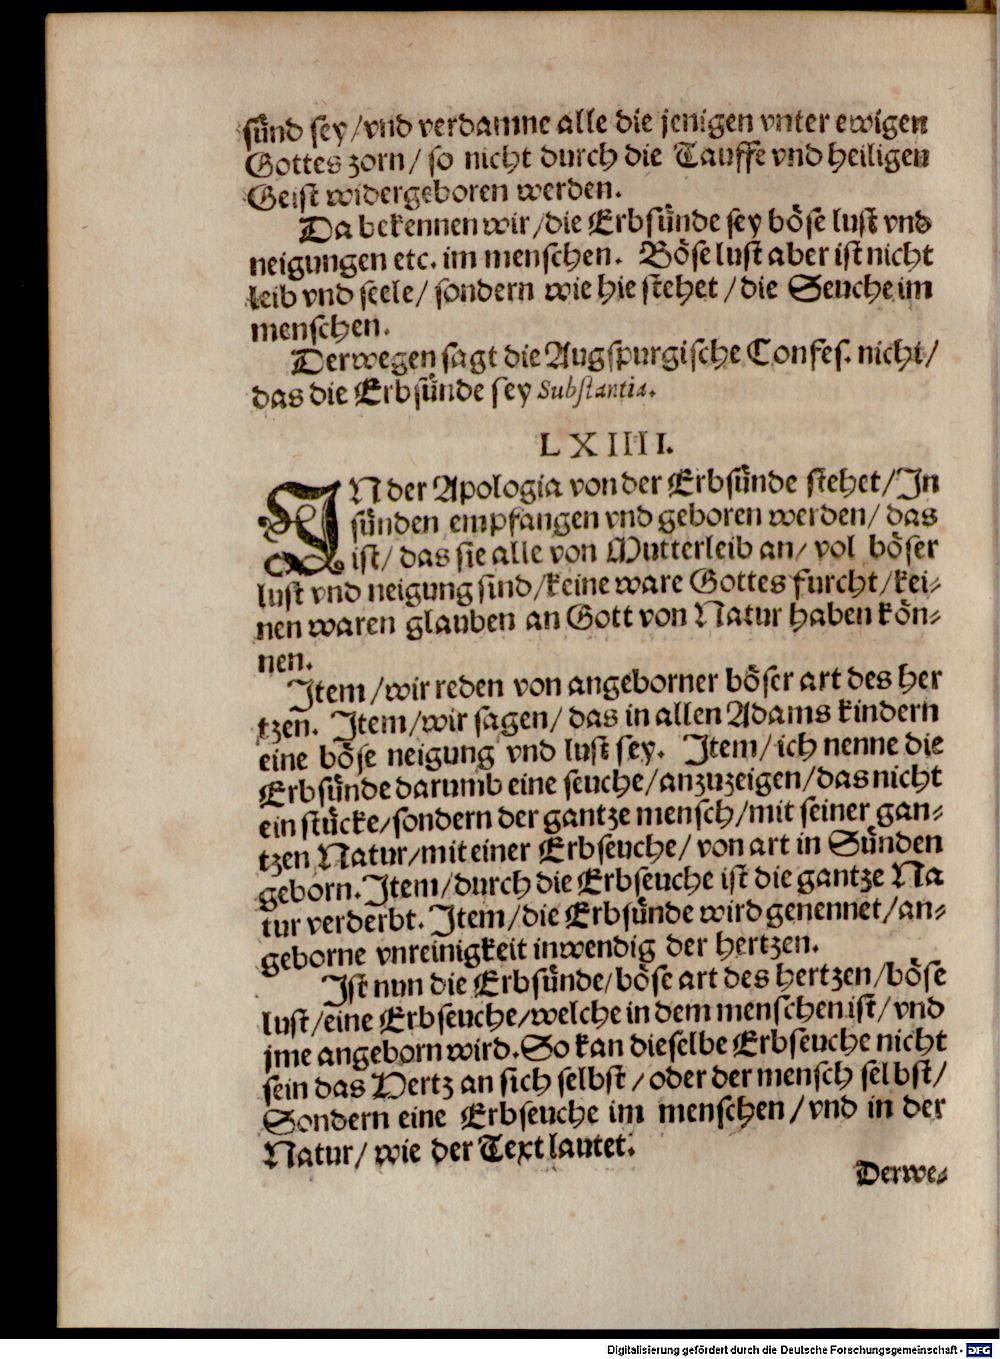 sünd sey/vnd verdamne alle die jenigen vnter ewigen
Gottes zorn/ so nicht durch die Tauffe vnd heiligen
Geist widergeboren werden.
Da bekennen wir/die Erbsünde sey böse lust vnd
neigungen etc. im menschen. Böse lust aber ist nicht
leib vnd seele/ sondern wie hie stehet/die Seuche im
menschen.
Derwegen sagt die Augspurgische Confes. nicht/
das die Erbsünde sey Substantia.
LXIIII.
IN der Apologia von der Erbsünde stehet/In
sünden empfangen vnd geboren werden/ das
ist/ das sie alle von Mutterleib an/ vol böser
lust vnd neigung sind/keine ware Gottes furcht/kei-
nen waren glauben an Gott von Natur haben kön-
nen.
Item/wir reden von angeborner böser art des her
tzen. Item/wir sagen/ das in allen Adams kindern
eine böse neigung vnd lust sey. Item/ich nenne die
Erbsünde darumb eine seuche/anzuzeigen/das nicht
ein stücke/sondern der gantze mensch/mit seiner gan-
tzen Natur/mit einer Erbseuche/ von art in Sünden
geborn. Item/durch die Erbseuche ist die gantze Na
tur verderbt. Item/die Erbsünde wird genennet/an-
geborne vnreinigkeit inwendig der hertzen.
Ist nun die Erbsünde/böse art des hertzen/böse
lust/eine Erbseuche/welche in dem menschen ist/vnd
jme angeborn wird. So kan dieselbe Erbseuche nicht
sein das Hertz an sich selbst/oder der mensch selbst/
Sondern eine Erbseuche im menschen/vnd in der
Natur/ wie der Text lautet.
Derwe-
Digitalisierung gefördert durch die Deutsche Forschungsgemeinschaft - DFG